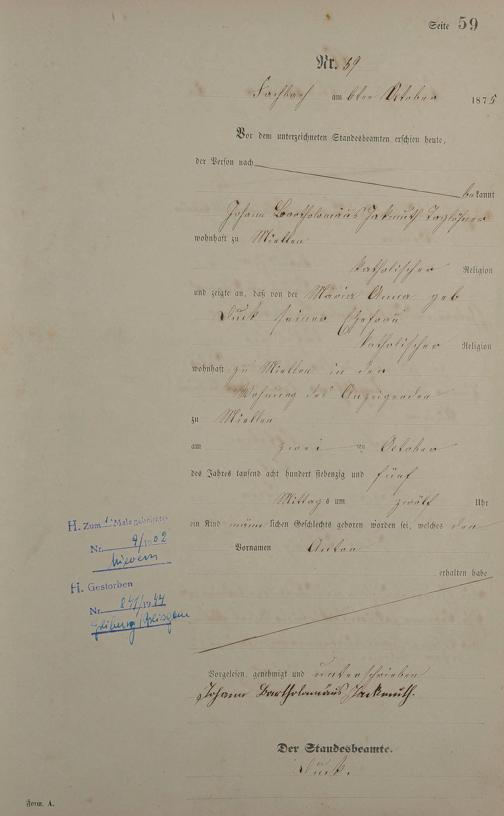 Seite 59
Nr. 59
Fachbach am 6ten October 1875
Vor dem unterzeichneten Standesbeamten erschien heute,
der Person nach
bekannt
Johann Bartholomäus Jackmuth Taglöhner
wohnhaft zu Miellen
katholischer Religion
und zeigte an, daß von der Maria Anna geb
seiner Ehefrau
katholischer Religion
wohnhaft zu Miellen in der
Wohnung des Anzeigenden
zu Miellen
am zweiten October
des Jahres tausend acht hundert siebenzig und fünf
Mittags um zwölf Uhr
ein Kind männlichen Geschlechts geboren worden sei, welches den
Vornamen Anton
erhalten habe
H. Zum 1. Male geheiratet
Nr. 9/1902
Nievern
H. Gestorben
Nr.
Vorgelesen, genehmigt und unterschrieben
Johann Bartholomäus Jackmuth.
Der Standesbeamte.
Form. A.